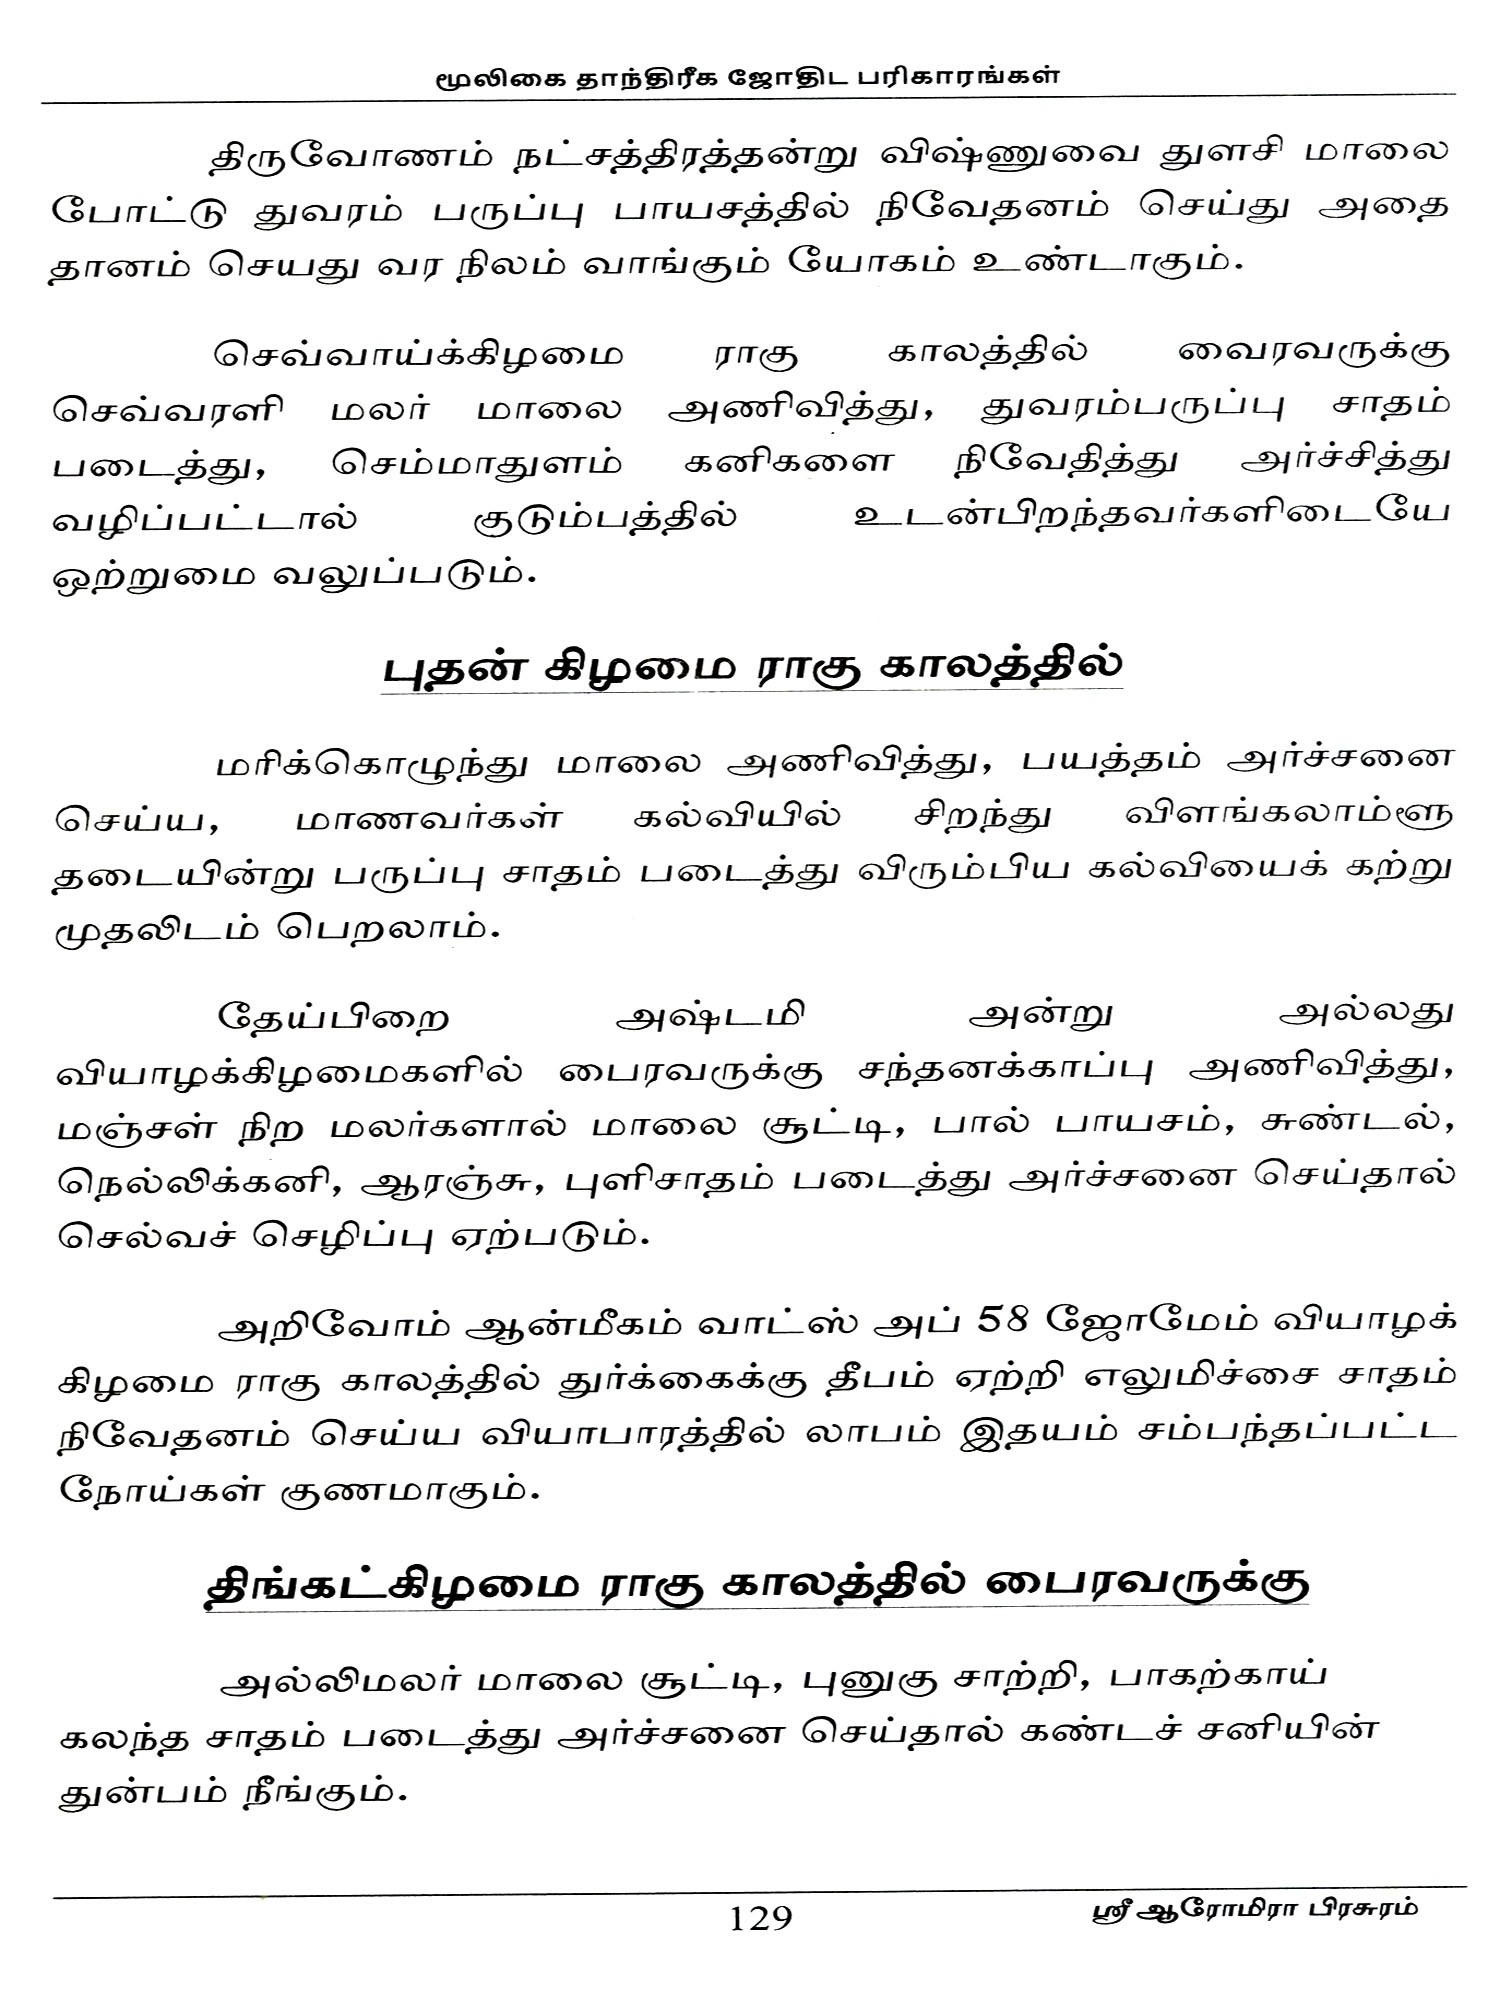 மூலிகை தாந்திரீக ஜோதிட பரிகாரங்கள்
திருவோணம் நட்சத்திரத்தன்று விஷ்ணுவை துளசி மாலை
போட்டு துவரம் பருப்பு பாயசத்தில் நிவேதனம் செய்து அதை
தானம் செயது வர நிலம் வாங்கும் யோகம் உண்டாகும்.
செவ்வாய்க்கிழமை ராகு காலத்தில் வைரவருக்கு
செவ்வரளி மலர் மாலை அணிவித்து, துவரம்பருப்பு சாதம்
படைத்து, செம்மாதுளம் கனிகளை நிவேதித்து அர்ச்சித்து
வழிப்பட்டால் குடும்பத்தில் உடன்பிறந்தவர்களிடையே
ஒற்றுமை வலுப்படும்.
புதன் கிழமை ராகு காலத்தில்
மரிக்கொழுந்து மாலை அணிவித்து, பயத்தம் அர்ச்சனை
செய்ய, மாணவர்கள் கல்வியில் சிறந்து விளங்கலாம்ளூ
தடையின்று பருப்பு சாதம் படைத்து விரும்பிய கல்வியைக் கற்று
முதலிடம் பெறலாம்.
தேய்பிறை அஷ்டமி அன்று அல்லது
வியாழக்கிழமைகளில் பைரவருக்கு சந்தனக்காப்பு அணிவித்து,
மஞ்சள் நிற மலர்களால் மாலை சூட்டி, பால் பாயசம், சுண்டல்,
நெல்லிக்கனி, ஆரஞ்சு, புளிசாதம் படைத்து அர்ச்சனை செய்தால்
செல்வச் செழிப்பு ஏற்படும்.
அறிவோம் ஆன்மீகம் வாட்ஸ் அப் 58 ஜோமேம் வியாழக்
கிழமை ராகு காலத்தில் துர்க்கைக்கு தீபம் ஏற்றி எலுமிச்சை சாதம்
நிவேதனம் செய்ய வியாபாரத்தில் லாபம் இதயம் சம்பந்தப்பட்ட
நோய்கள் குணமாகும்.
திங்கட்கிழமை ராகு காலத்தில் பைரவருக்கு
அல்லிமலர் மாலை சூட்டி, புனுகு சாற்றி, பாகற்காய்
கலந்த சாதம் படைத்து அர்ச்சனை செய்தால் கண்டச் சனியின்
துன்பம் நீங்கும்.
129
ஸ்ரீ ஆரோமிரா பிரசுரம்